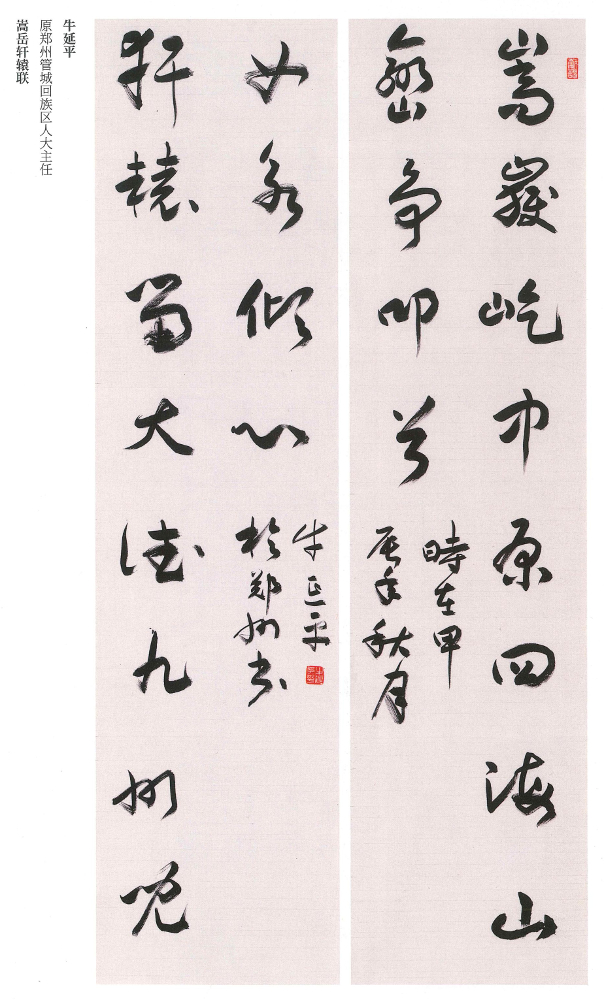 嵩嶽屹中原四海山
峦争叩首
時在甲
辰年秋月
轩辕留大德九州兒
女永倾心
牛延平
於郑州书
牛延平
原郑州管城回族区人大主任
嵩岳轩辕联